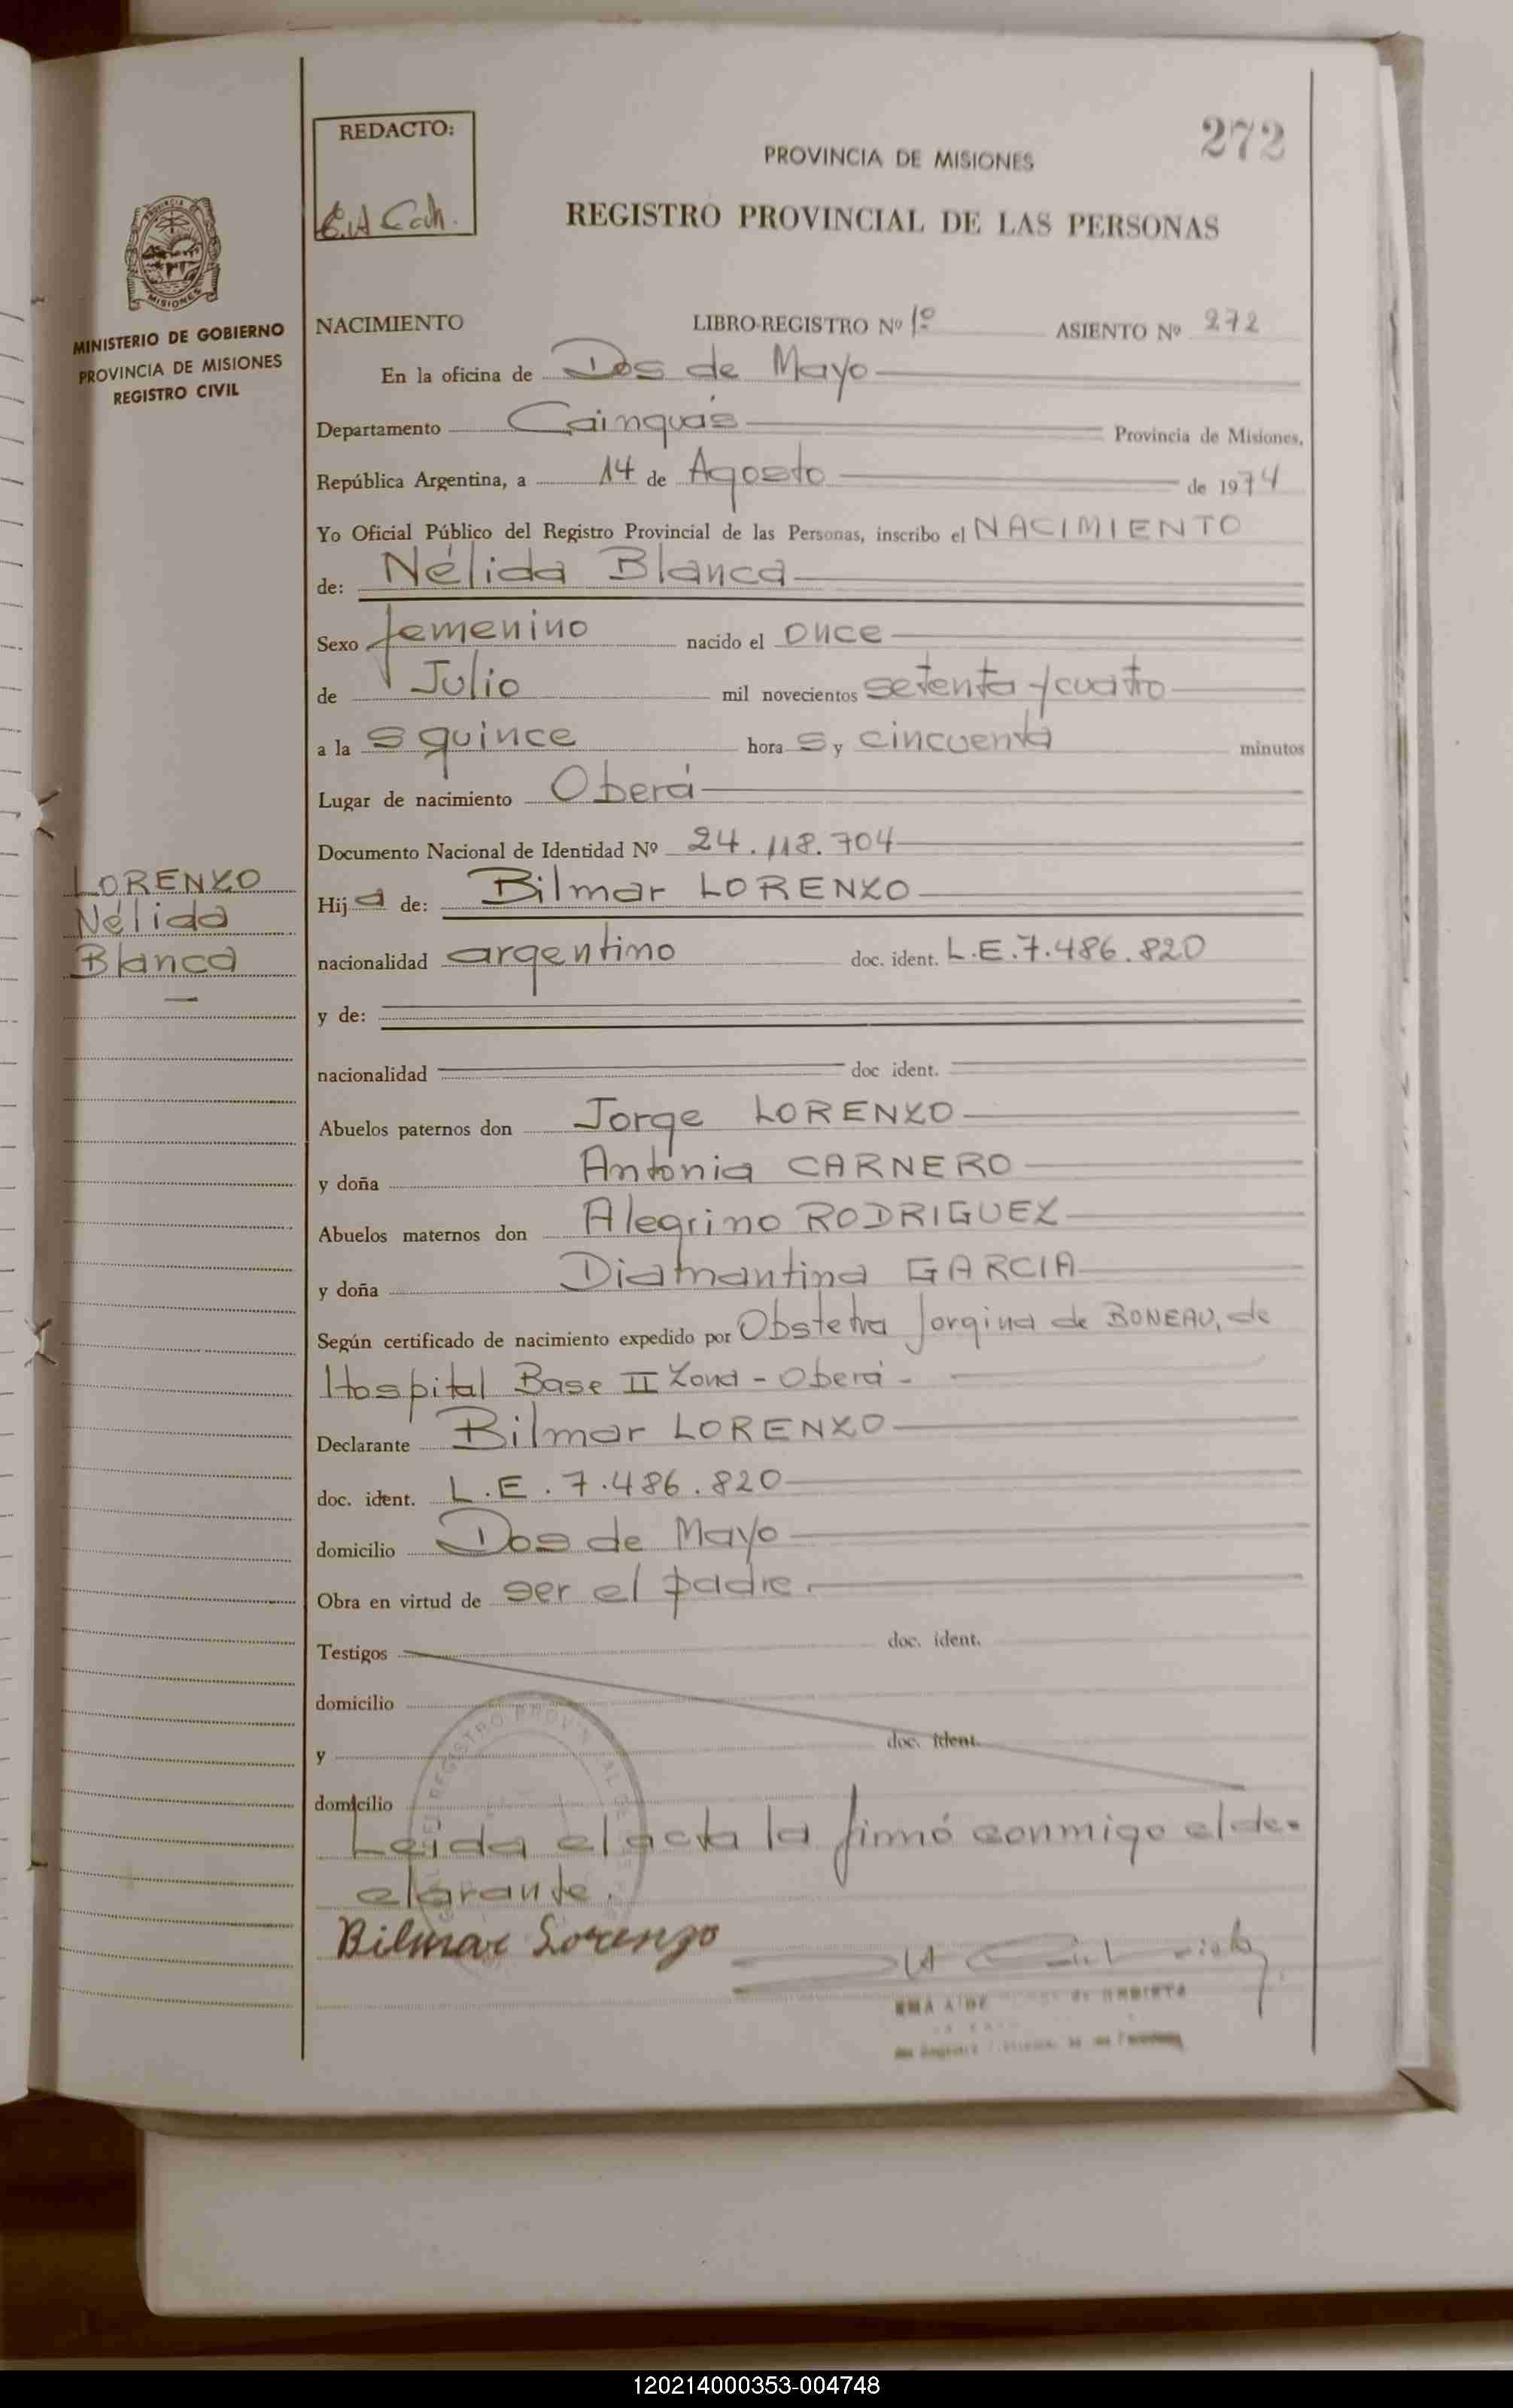 REDACTO:
272
PROVINCIA DE MISIONES
REGISTRO PROVINCIAL DE LAS PERSONAS
MISIONES
MINISTERIO DE GOBIERNO
PROVINCIA DE MISIONES
REGISTRO CIVIL
NACIMIENTO LIBRO-REGISTRO Nº 1º ASIENTO Nº 272
En la oficina de Dos de Mayo
Departamento Cainguás Provincia de Misiones,
República Argentina, a 14 de Agosto de 1974
Yo Oficial Público del Registro Provincial de las Personas, inscribo el NACIMIENTO
de: Nélida Blanca
Sexo femenino nacido el once
de Julio mil novecientos setenta y cuatro
a la s quince hora s y cincuenta minutos
Lugar de nacimiento Oberá
Documento Nacional de Identidad Nº 24.118.704
LORENZO
Nélida
Blanca
Hij a de: Bilmar LORENZO
nacionalidad argentino doc. ident. L.E.7.486.820
y de:
nacionalidad doc ident.
Abuelos paternos don Jorge LORENZO
y doña Antonia CARNERO
Abuelos maternos don Alegrino RODRIGUEZ
y doña Diamantina GARCIA
Según certificado de nacimiento expedido por Obstetra Jorgina de BONEAU, de
Hospital Base II Zona - Oberá -
Declarante Bilmar LORENZO
doc. ident. L.E. 7.486.820
domicilio Dos de Mayo
Obra en virtud de ser el padre.
Testigos doc. ident.
domicilio
y doc. ident.
domicilio
Leída el acta la firmó conmigo el de-
clarante.
Bilmar Lorenzo
120214000353-004748